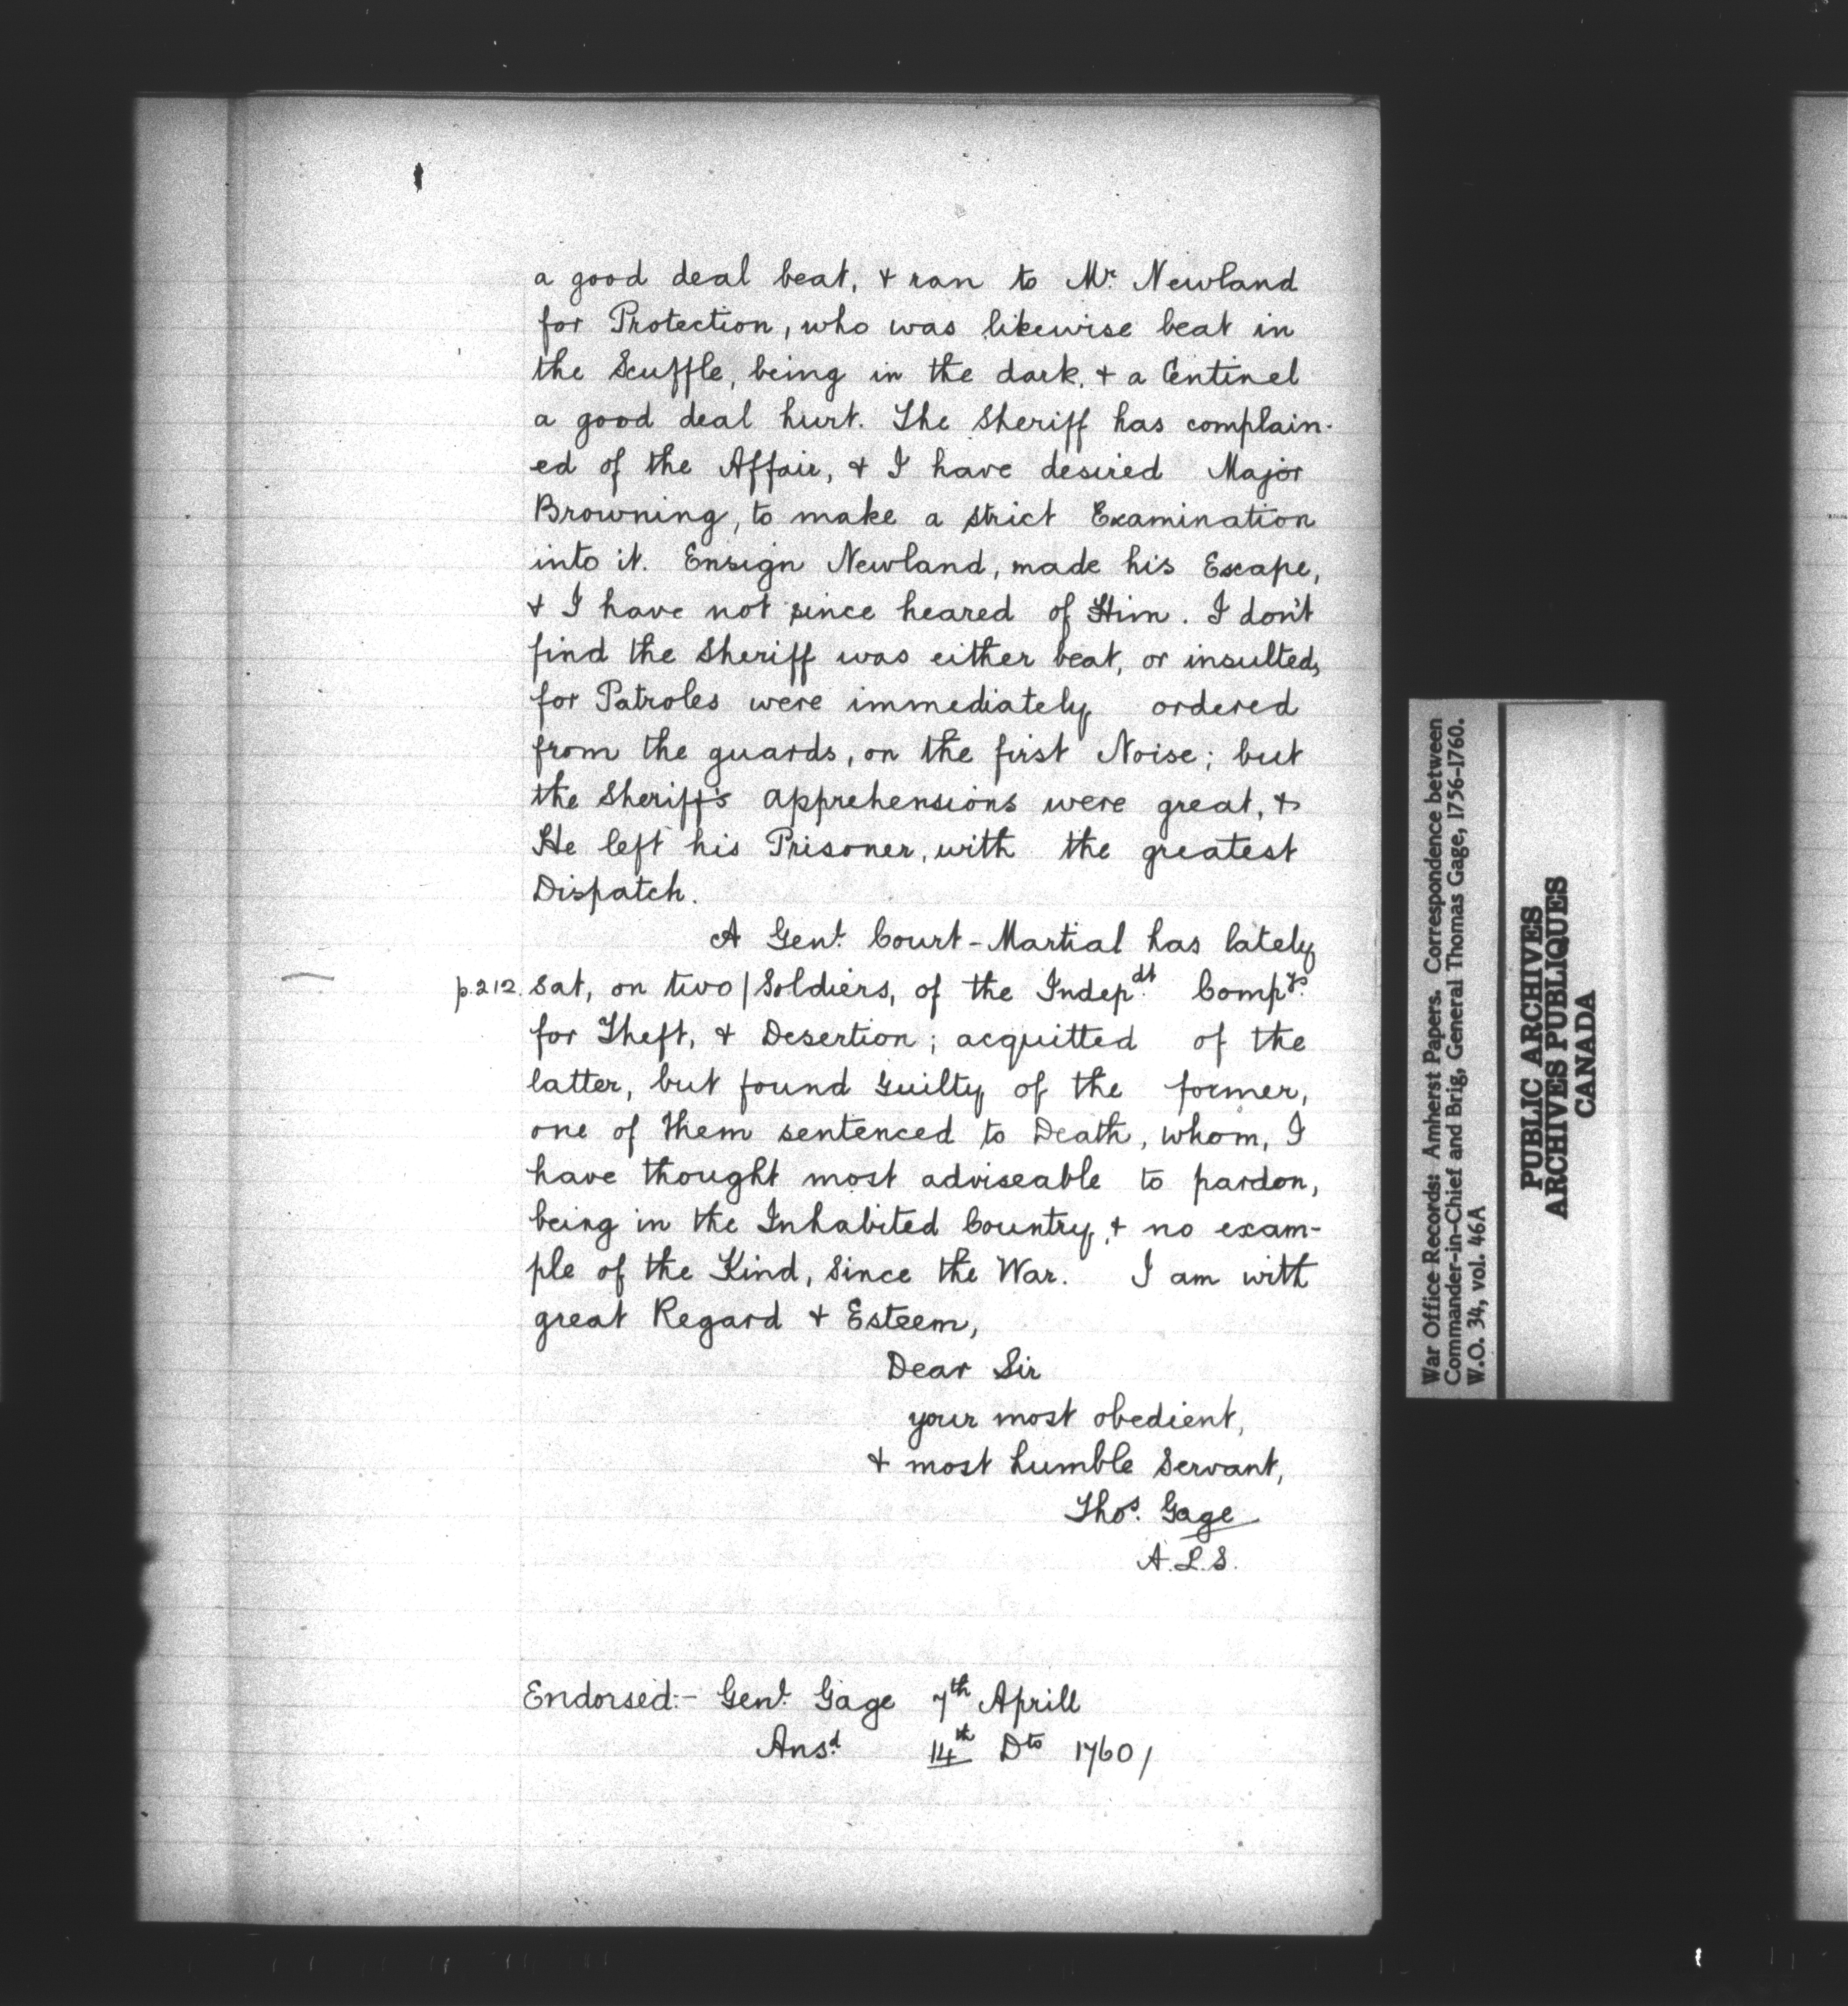 a good deal beat, & ran to Mr. Newland
for Protection, who was likewise beat in
the Scuffle, being in the dark, & a Centinel
a good deal hurt. The Sheriff has complain-
ed of the Affair, & I have desired Major
Browning, to make a strict Examination
into it. Ensign Newland, made his Escape,
& I have not since heared of Him. I don't
find the Sheriff was either beat, or insulted,
for Patroles were immediately ordered
from the guards, on the first Noise; but
the Sheriff's apprehensions were great, &
He left his Prisoner, with the greatest
Dispatch.
A Genl. Court-Martial has lately
p.212. sat, on two / Soldiers, of the Indepdt. Compys.
for Theft, & Desertion; acquitted of the
latter, but found guilty of the former,
one of them sentenced to Death, whom, I
have thought most adviseable to pardon,
being in the Inhabited Country, & no exam-
ple of the Kind, since the War. I am with
great Regard & Esteem,
Dear Sir
your most obedient,
& most humble servant,
Thos. Gage
A.L.S.
Endorsed:- Genl. Gage 7th Aprill
Ansd. 14th Dto 1760/
War Office Records: Amherst Papers. Correspondence between
Commander-in-Chief and Brig, General Thomas Gage, 1756-1760.
W.O. 34, vol. 46A
PUBLIC ARCHIVES
ARCHIVES PUBLIQUES
CANADA